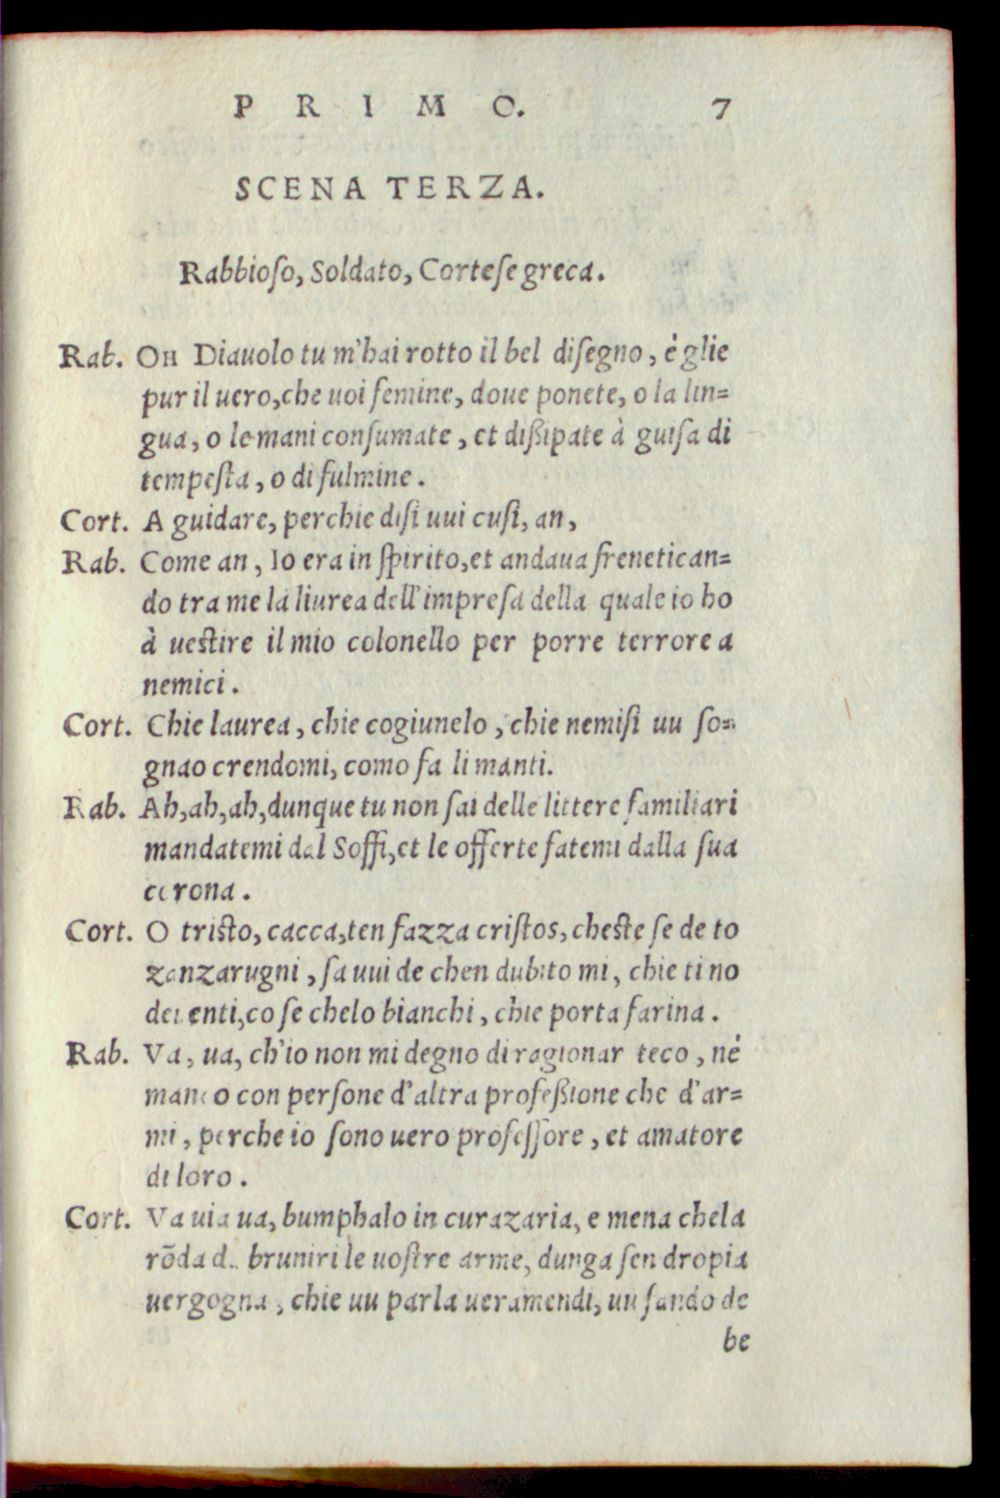 PRIMO. 7
SCENA TERZA.
Rabbioso, Soldato, Cortese greca.
Rab. OH Diauolo tu m'hai rotto il bel disegno, è glie
pur il uero, che uoi femine, doue ponete, o la lin=
gua, o le mani consumate, et dißipate à guisa di
tempesta, o di fulmine.
Cort. A guidare, perchie disi uui cusi, an,
Rab. Come an, Io era in spirito, et andaua frenetican=
do tra me la liurea dell'impresa della quale io ho
à uestire il mio colonello per porre terrore a
nemici.
Cort. Chie laurea, chie cogiunelo, chie nemisi uu so=
gnao crendomi, como fa li manti.
Rab. Ah, ah, ah, dunque tu non sai delle littere familiari
mandatemi dal Soffi, et le offerte fatemi dalla sua
corona.
Cort. O tristo, cacca, ten fazza cristos, cheste se de to
zanzarugni, sa uui de chen dubito mi, chie ti no
co se chelo bianchi, chie porta farina.
Rab. Va, ua, ch'io non mi degno di ragionar teco, nè
manco con persone d'altra profeßione che d'ar=
mi, perche io sono uero professore, et amatore
di loro.
Cort. Va uia ua, bumphalo in curazaria, e mena chela
rōda bruniri le uostre arme, dunga sen dropia
uergogna, chie uu parla ueramendi, uu sando de
be